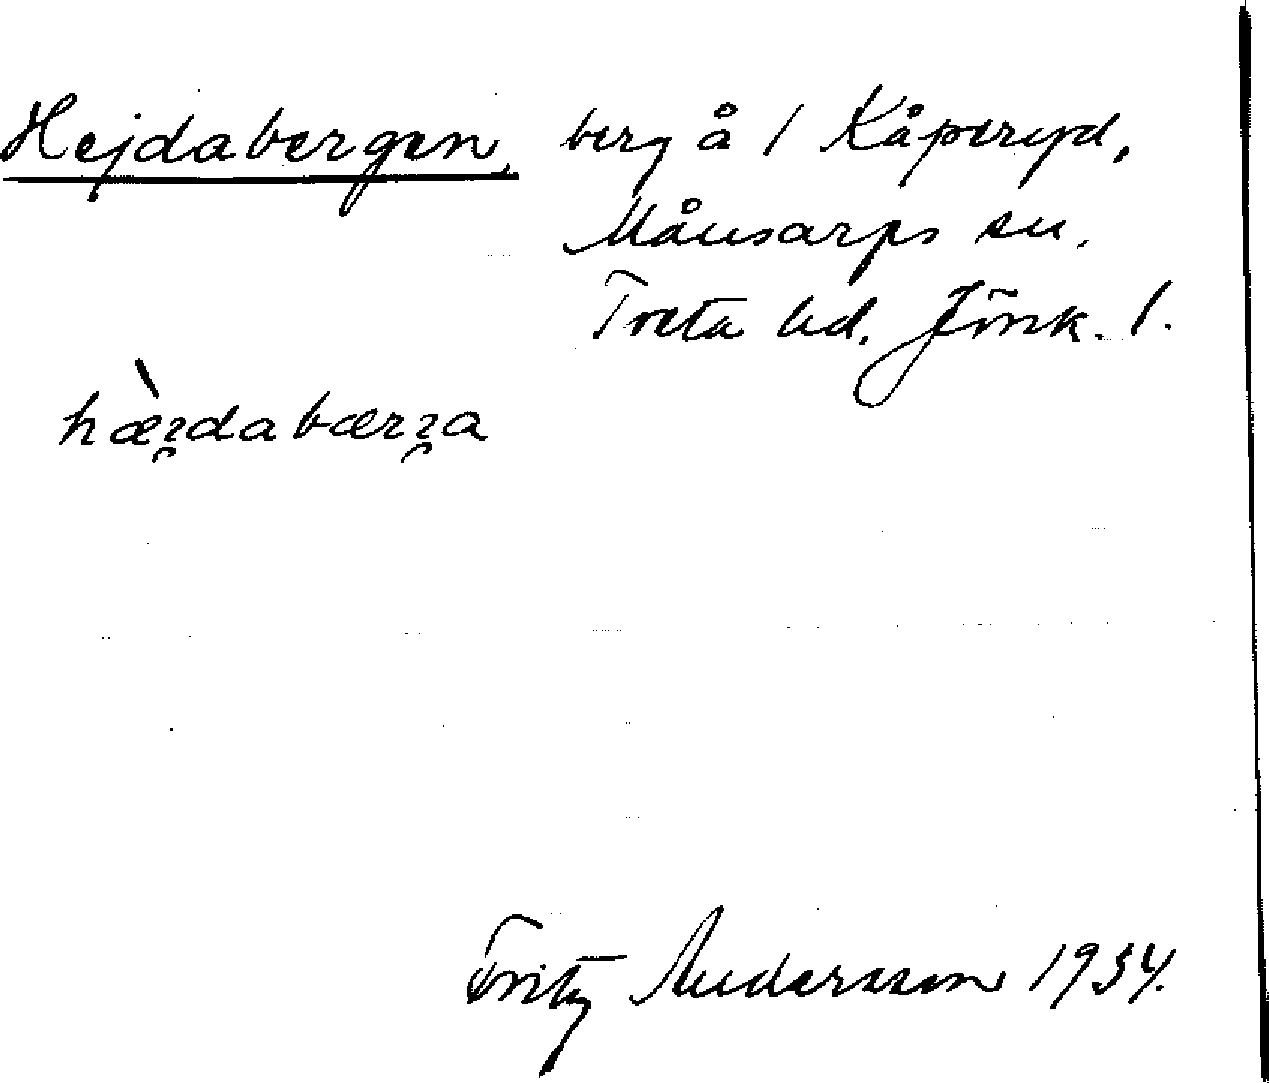 Hejdabergen, berg å 1 Kåperyd,
Månsarps sn.
Tveta hd. Jönk. l.
hæ̀i̯dabæri̯a
Fritz Andersson 1934.